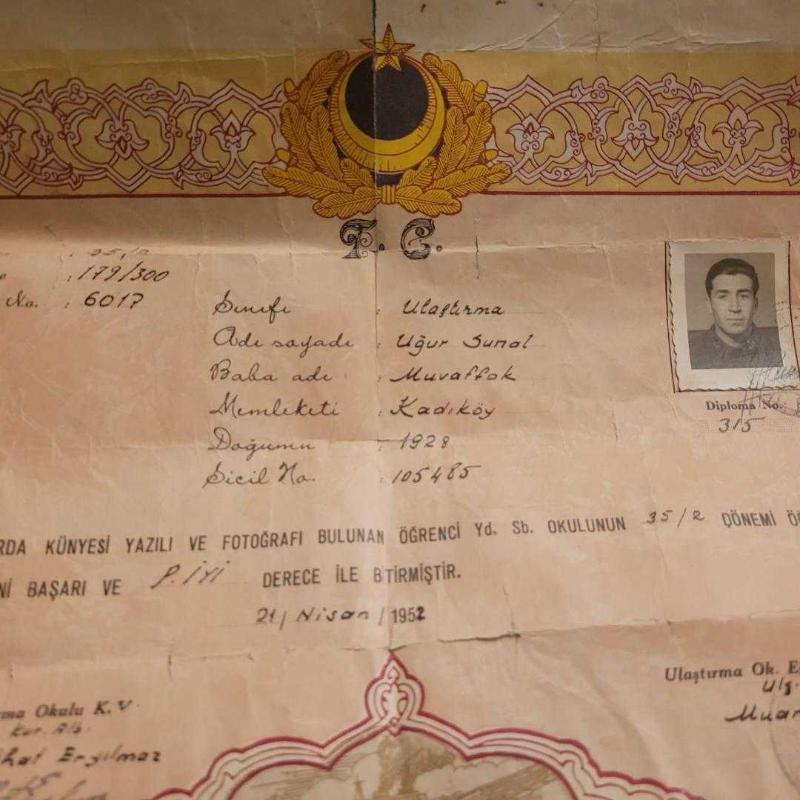 T. C.
35/2
: 179/300
No. : 6017
Sınıfı : Ulaştırma
Adı soyadı : Uğur Sunal
Baba adı : Muvaffak
Memleketi : Kadıköy
Doğumu - 1928
Sicil No. : 105485
Diploma No.:
315
KÜNYESİ YAZILI VE FOTOĞRAFI BULUNAN ÖĞRENCİ Yd. Sb. OKULUNUN 35/2 DÖNEMİ
BAŞARI VE P.İYİ DERECE İLE BİTİRMİŞTİR.
21/Nisan/1952
Okulu K. V.
Eryılmaz
Ulaştırma Ok.